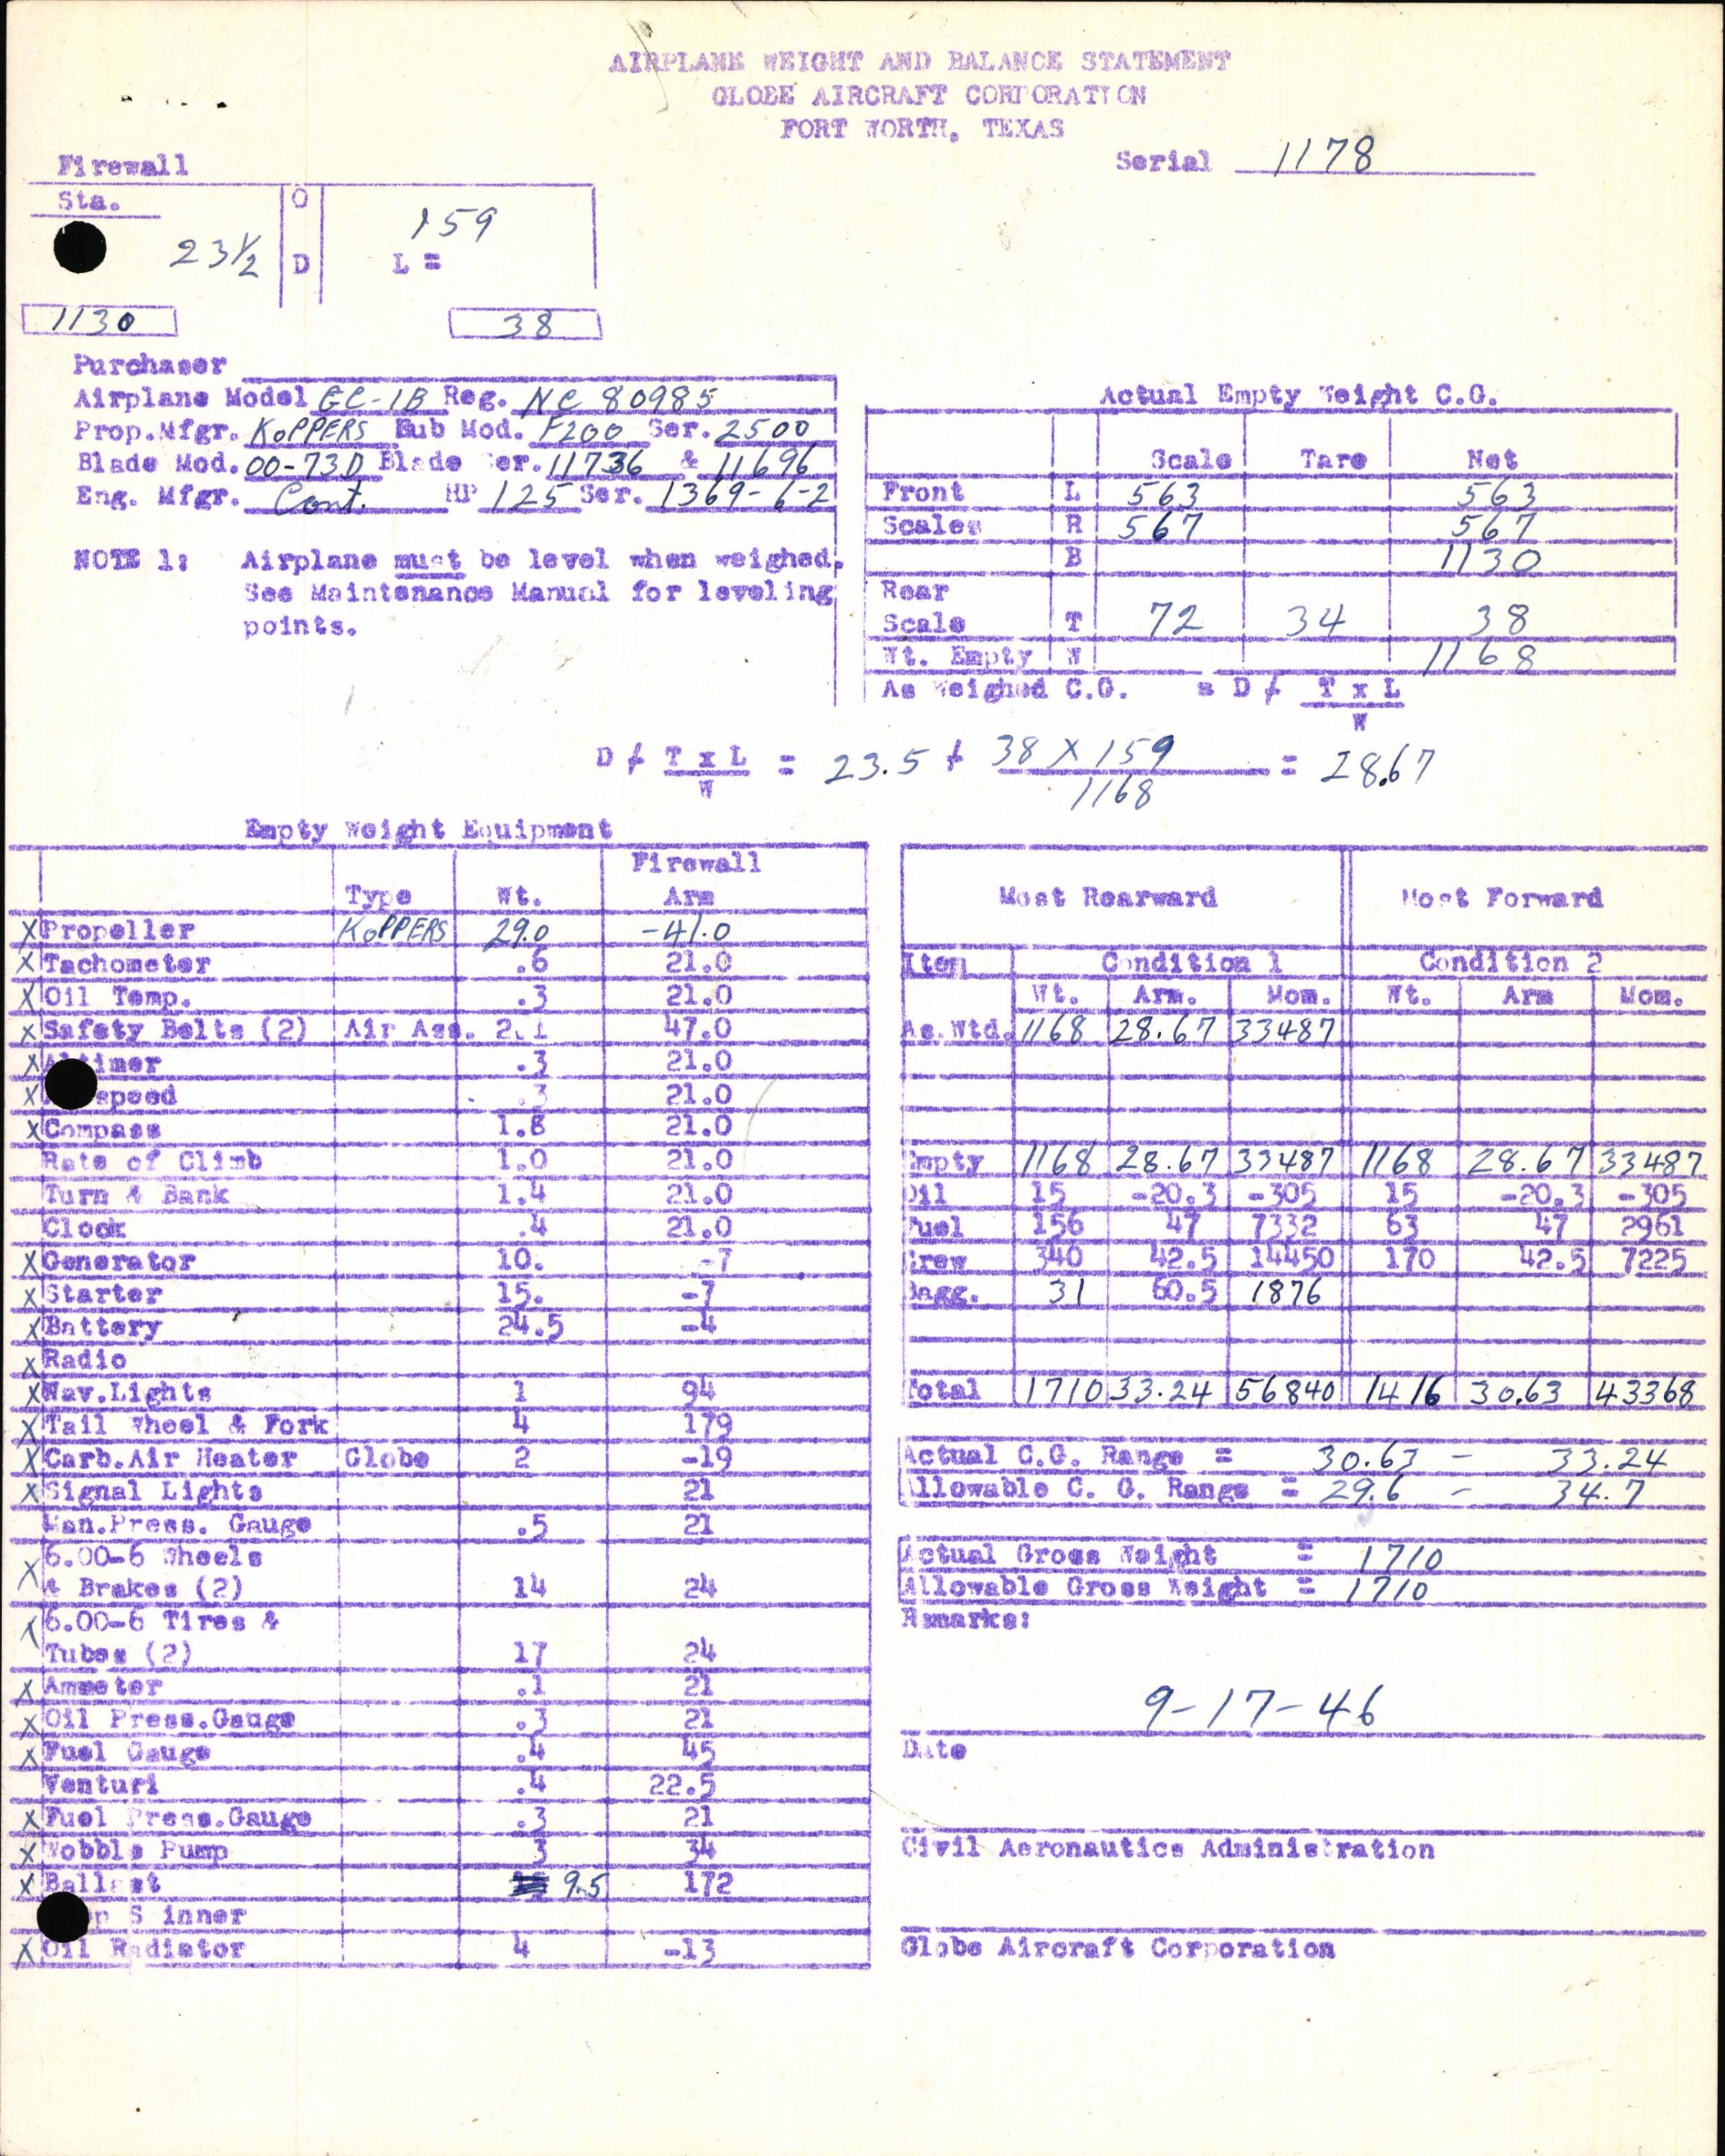 AIRPLANE WEIGHT AND BALANCE STATEMENT
GLOBE AIRCRAFT CORPORATION
FORT WORTH, TEXAS
Serial 1178
Firewall
Sta. O
159
23½ D L =
1130 38
Purchaser
Airplane Model GC-1B Reg. NC 80985
Prop.Mfgr. KOPPERS Hub Mod. F200 Ser. 2500
Blade Mod. 00-73D Blade Ser. 11736 & 11696
Eng. Mfgr. Cont. HP 125 Ser. 1369-6-2
NOTE 1: Airplane must be level when weighed.
See Maintenance Manual for leveling
points.
Actual Empty Weight C.G.
Scale Tare Net
Front L 563 563
Scales R 567 567
B 1130
Rear
Scale T 72 34 38
Wt. Empty W 1168
As Weighed C.G. = D + T x L
W
D + T x L = 23.5 + 38 X 159 = 28.67
W 1168
Empty Weight Equipment
Firewall
Type Wt. Arm
X Propeller KOPPERS 29.0 -41.0
X Tachometer .6 21.0
X Oil Temp. .3 21.0
X Safety Belts (2) Air Ass. 2.1 47.0
X timer .3 21.0
X speed .3 21.0
X Compass 1.8 21.0
Rate of Climb 1.0 21.0
Turn & Bank 1.4 21.0
Clock .4 21.0
X Generator 10. -7
X Starter 15. -7
X Battery 24.5 -4
X Radio
X Nav.Lights 1 94
X Tail Wheel & Fork 4 179
X Carb.Air Heater Globe 2 -19
X Signal Lights 21
Man.Press. Gauge .5 21
X 6.00-6 Wheels
& Brakes (2) 14 24
X 6.00-6 Tires &
Tubes (2) 17 24
X Ammeter .1 21
X Oil Press.Gauge .3 21
X Fuel Gauge .4 45
Venturi .4 22.5
X Fuel Press.Gauge .3 21
X Wobble Pump 3 34
X Ballast 9.5 172
p S inner
X Oil Radiator 4 -13
Most Rearward Most Forward
Item Condition 1 Condition 2
Wt. Arm. Mom. Wt. Arm Mom.
As Wtd. 1168 28.67 33487
Empty 1168 28.67 33487 1168 28.67 33487
Oil 15 -20.3 -305 15 -20.3 -305
Fuel 156 47 7332 63 47 2961
Crew 340 42.5 14450 170 42.5 7225
Bagg. 31 60.5 1876
Total 1710 33.24 56840 1416 30.63 43368
Actual C.G. Range = 30.63 - 33.24
Allowable C. G. Range = 29.6 - 34.7
Actual Gross Weight = 1710
Allowable Gross Weight = 1710
Remarks:
9-17-46
Date
Civil Aeronautics Administration
Globe Aircraft Corporation